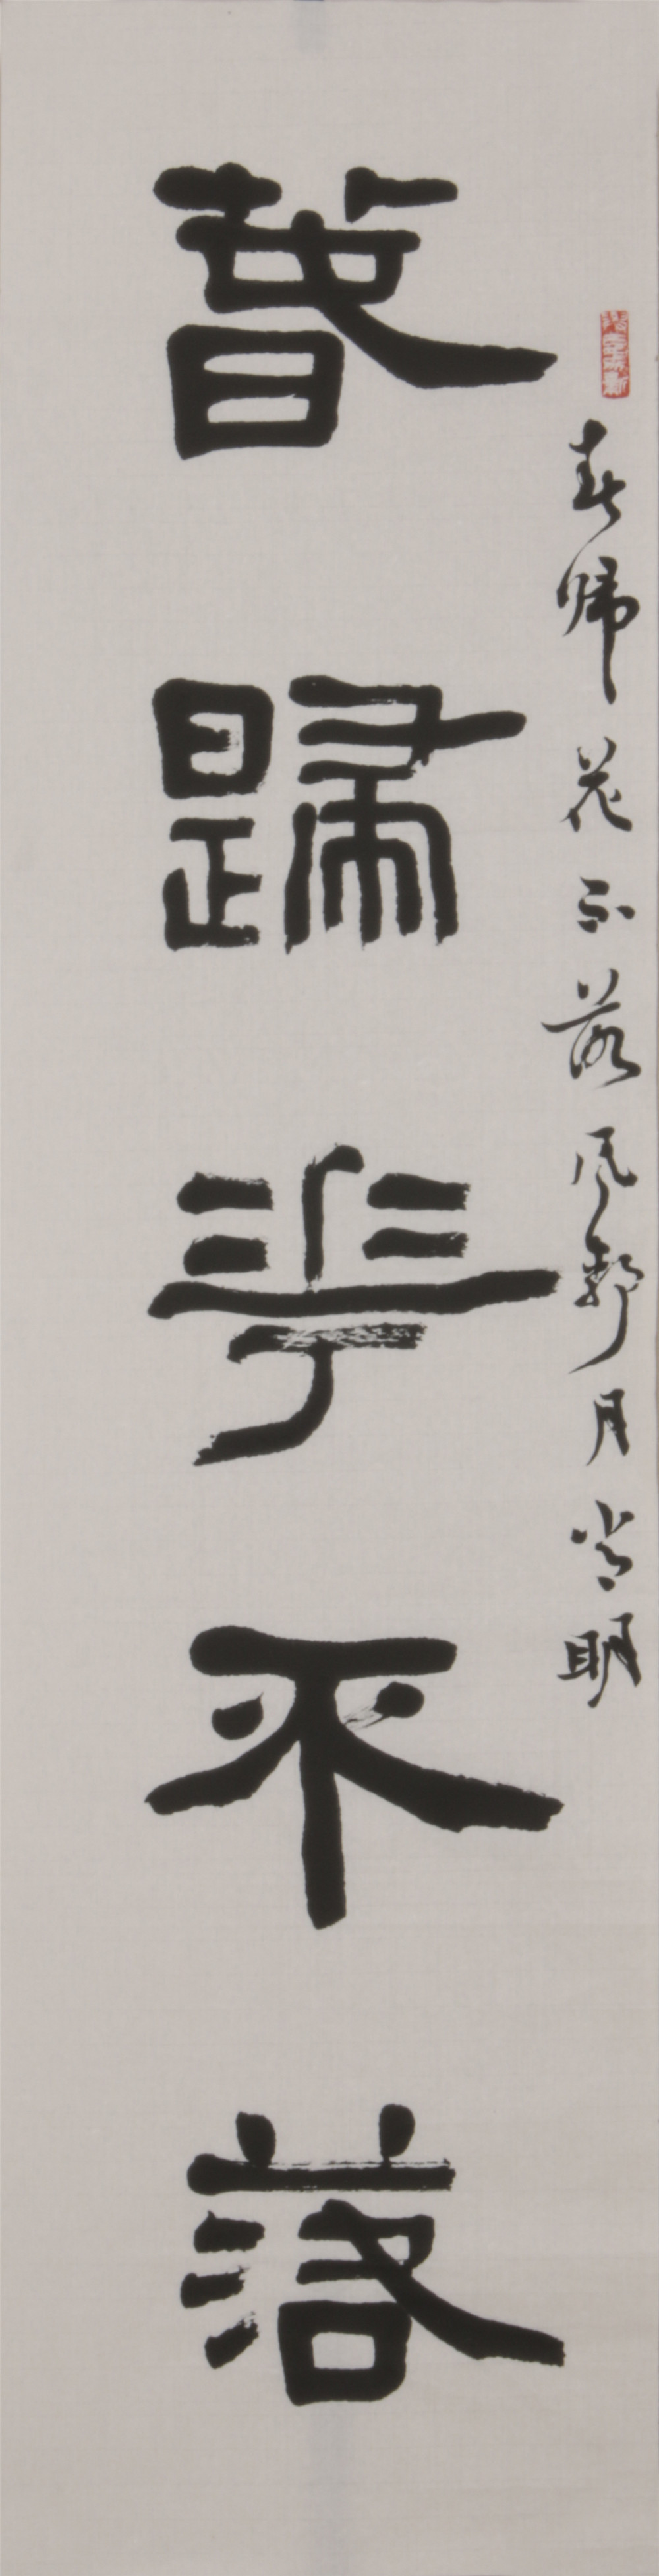 春歸花不落
春歸花不落風靜月常明